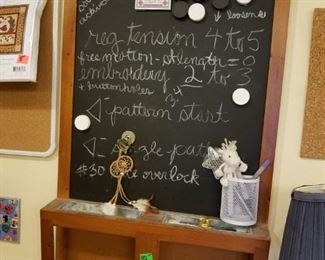 loosens
reg tension 4 to 5
free motion - strength = 0
embroidery 2 to 3
+ buttonholes
◁ - pattern start
◁ single
#30 overlock